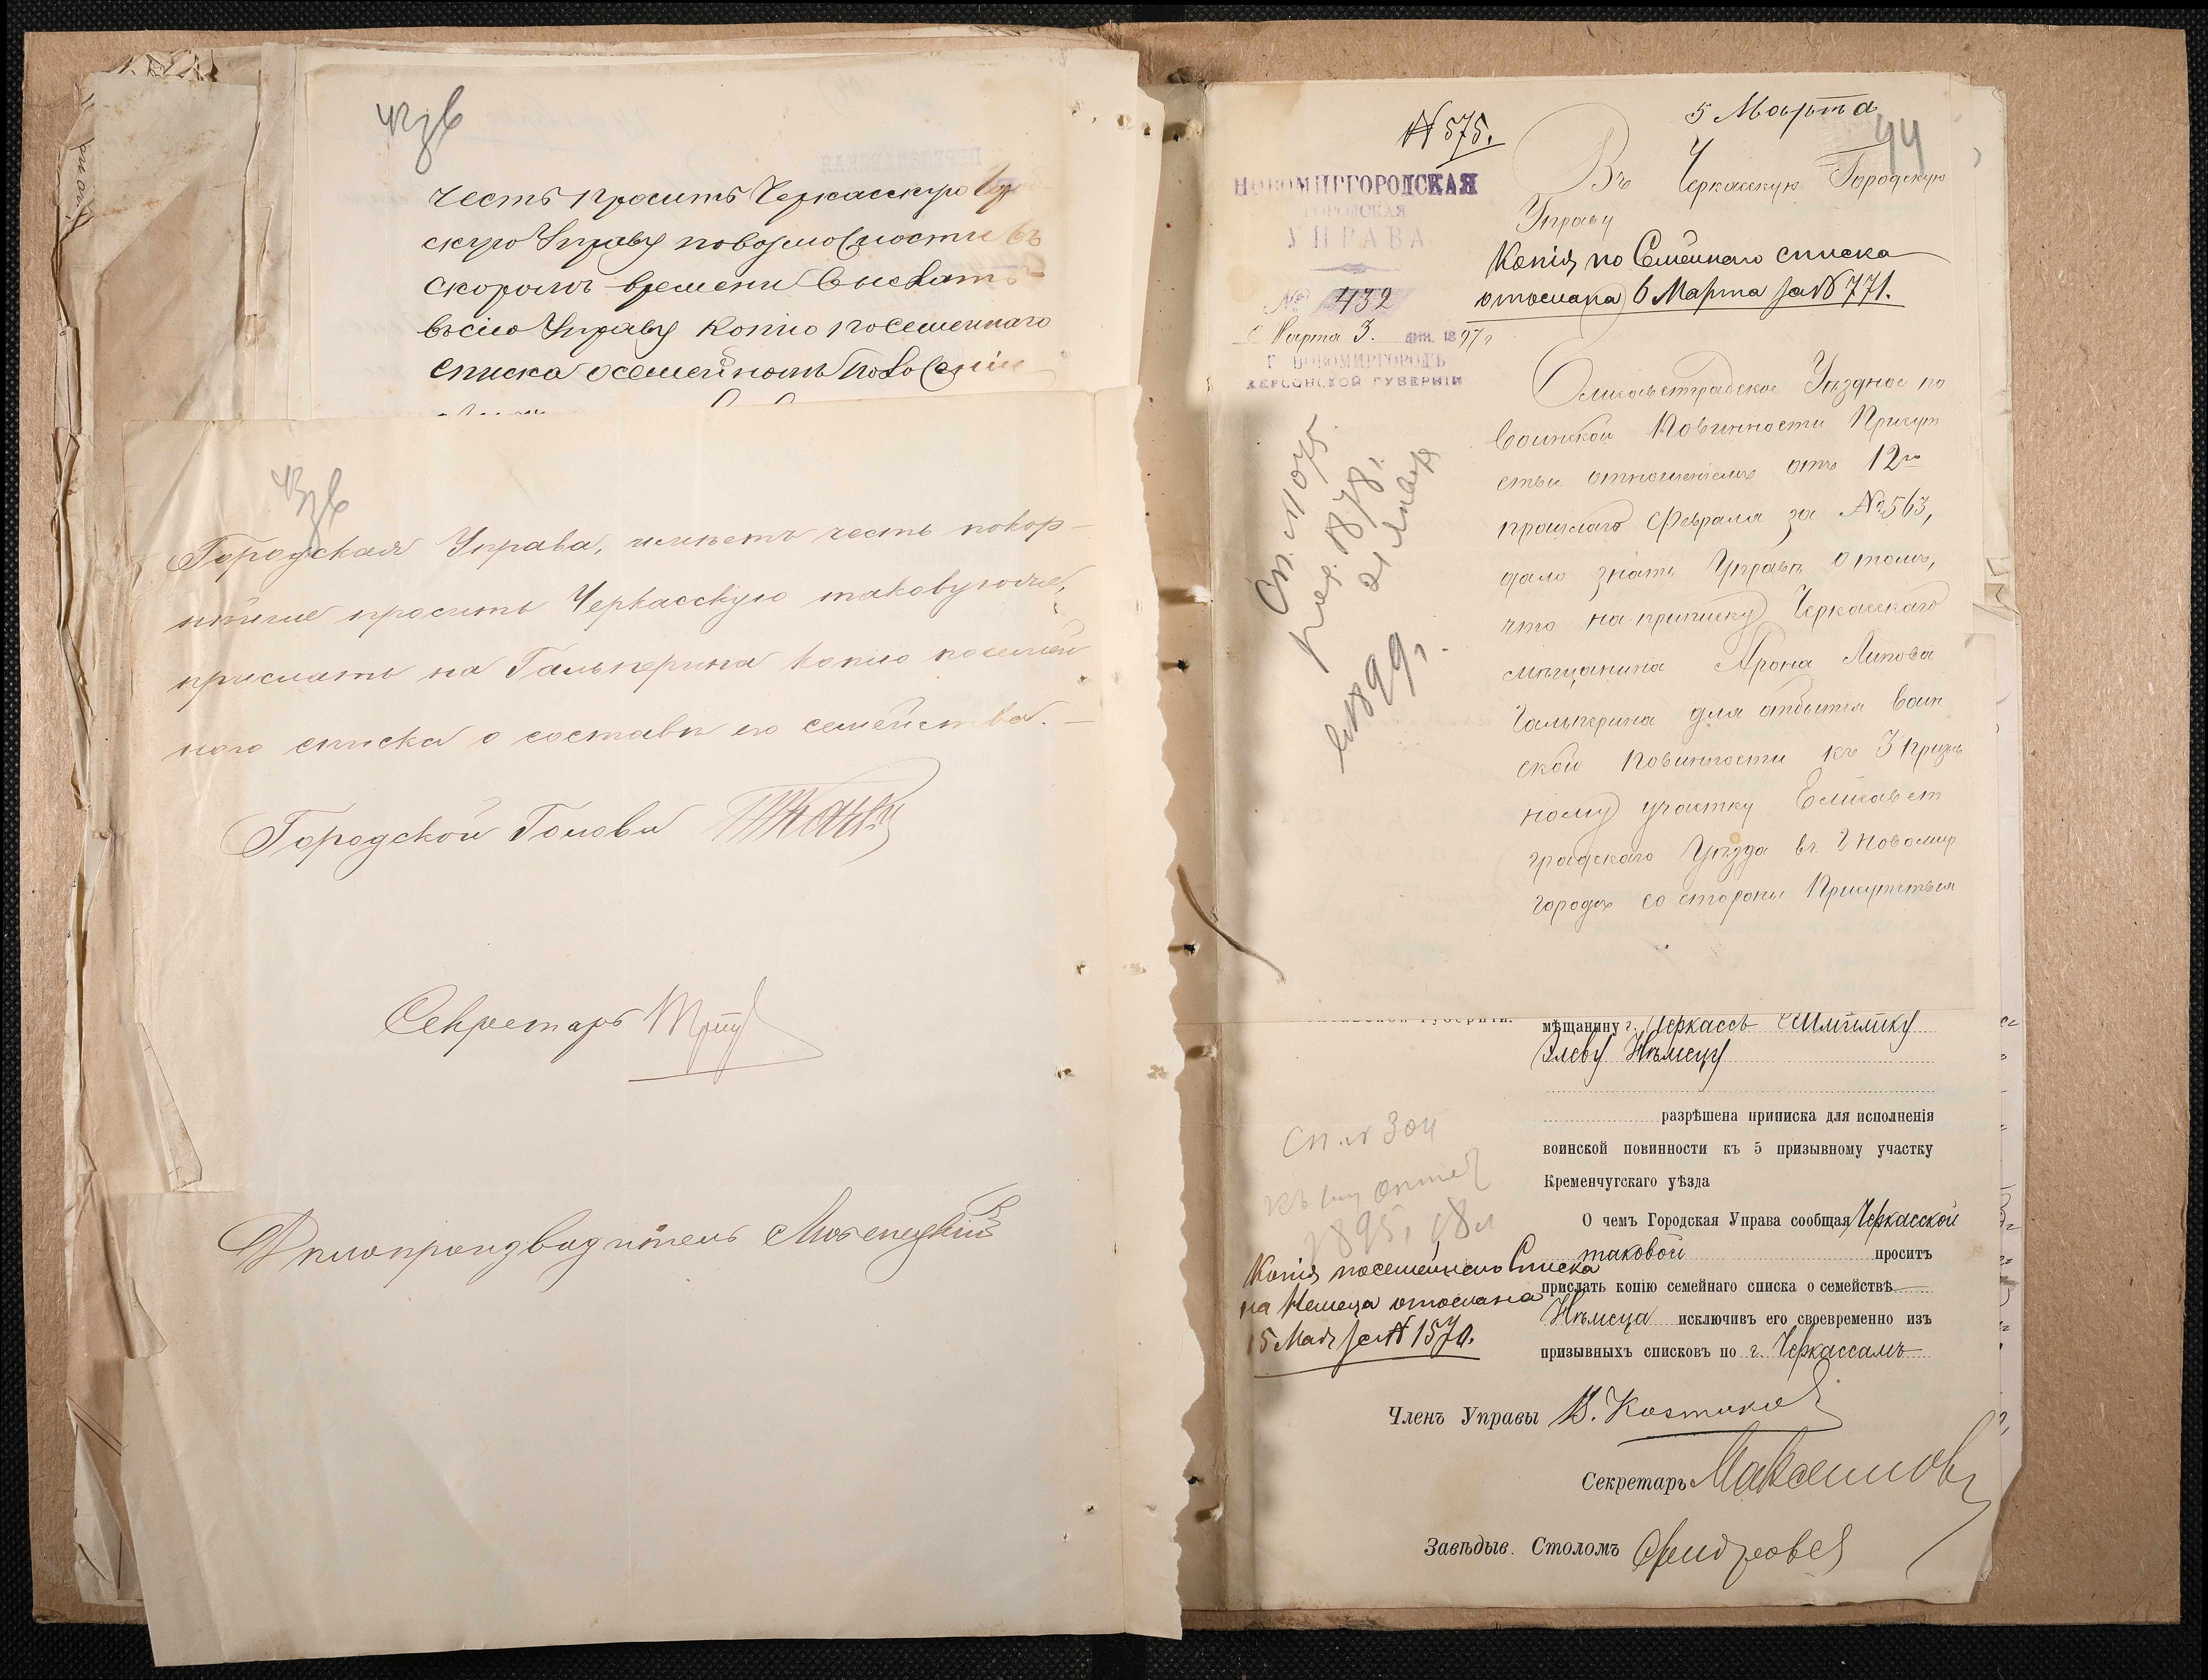 42 зв
честь просить Черкасскую Го
скую Управу повозможности въ
скоромъ времени выслать
въсію Управу копію посемейнаго
списка осемейномъ положеніи
43 зв
Городская Управа, имѣетъ честь покор-
нѣйше просить Черкасскую таковую же,
прислать на Гальперина копію посемей
наго списка о составѣ его семейства.
Городской Голова
Секретарь
Дѣлопроизводитель
№ 575.
5 Марта
44
Въ Черкасскую Городскую
Управу
НОВОМИРГОРОДСКАЯ
ГОРОДСКАЯ
УПРАВА
№ 432
Марта 3. дня. 1897 г
Г. НОВОМИРГОРОДЪ
ХЕРСОНСКОЙ ГУБЕРНІИ
Копія по Семейнаго списка
отослана 6 Марта за № 771.
Елисаветградское Уѣздное по
воинской Повинности Присут
ствіе отношеніемъ отъ 12го
прошлаго Февраля за № 563,
дало знать Управѣ о томъ,
что на приписку Черкасскаго
мѣщанина Арона Липова
Гальперина для отбытія воин
ской Повинности къ 3 призыв
ному участку Елисавет
градскаго Уѣзда въ г Новомир
городѣ со стороны Присутствія
Сп. № 1075
род. 1878 г.
21 Января
1899 г.
мѣщанину г. Черкассъ Шмилику
Элеву Нѣмецу
разрѣшена приписка для исполненія
воинской повинности къ 5 призывному участку
Кременчугскаго уѣзда
О чемъ Городская Управа сообщая Черкасской
таковой проситъ
прислать копію семейнаго списка о семействѣ
Нѣмеца исключивъ его своевременно изъ
призывныхъ списковъ по г. Черкассамъ
Сп. № 304
1895 г. 18
Копія посемейнаго Списка
на Немеца отослана
15 Мая за № 1570.
Членъ Управы В. Костиков
Секретарь Максимов
Завѣдыв. Столомъ